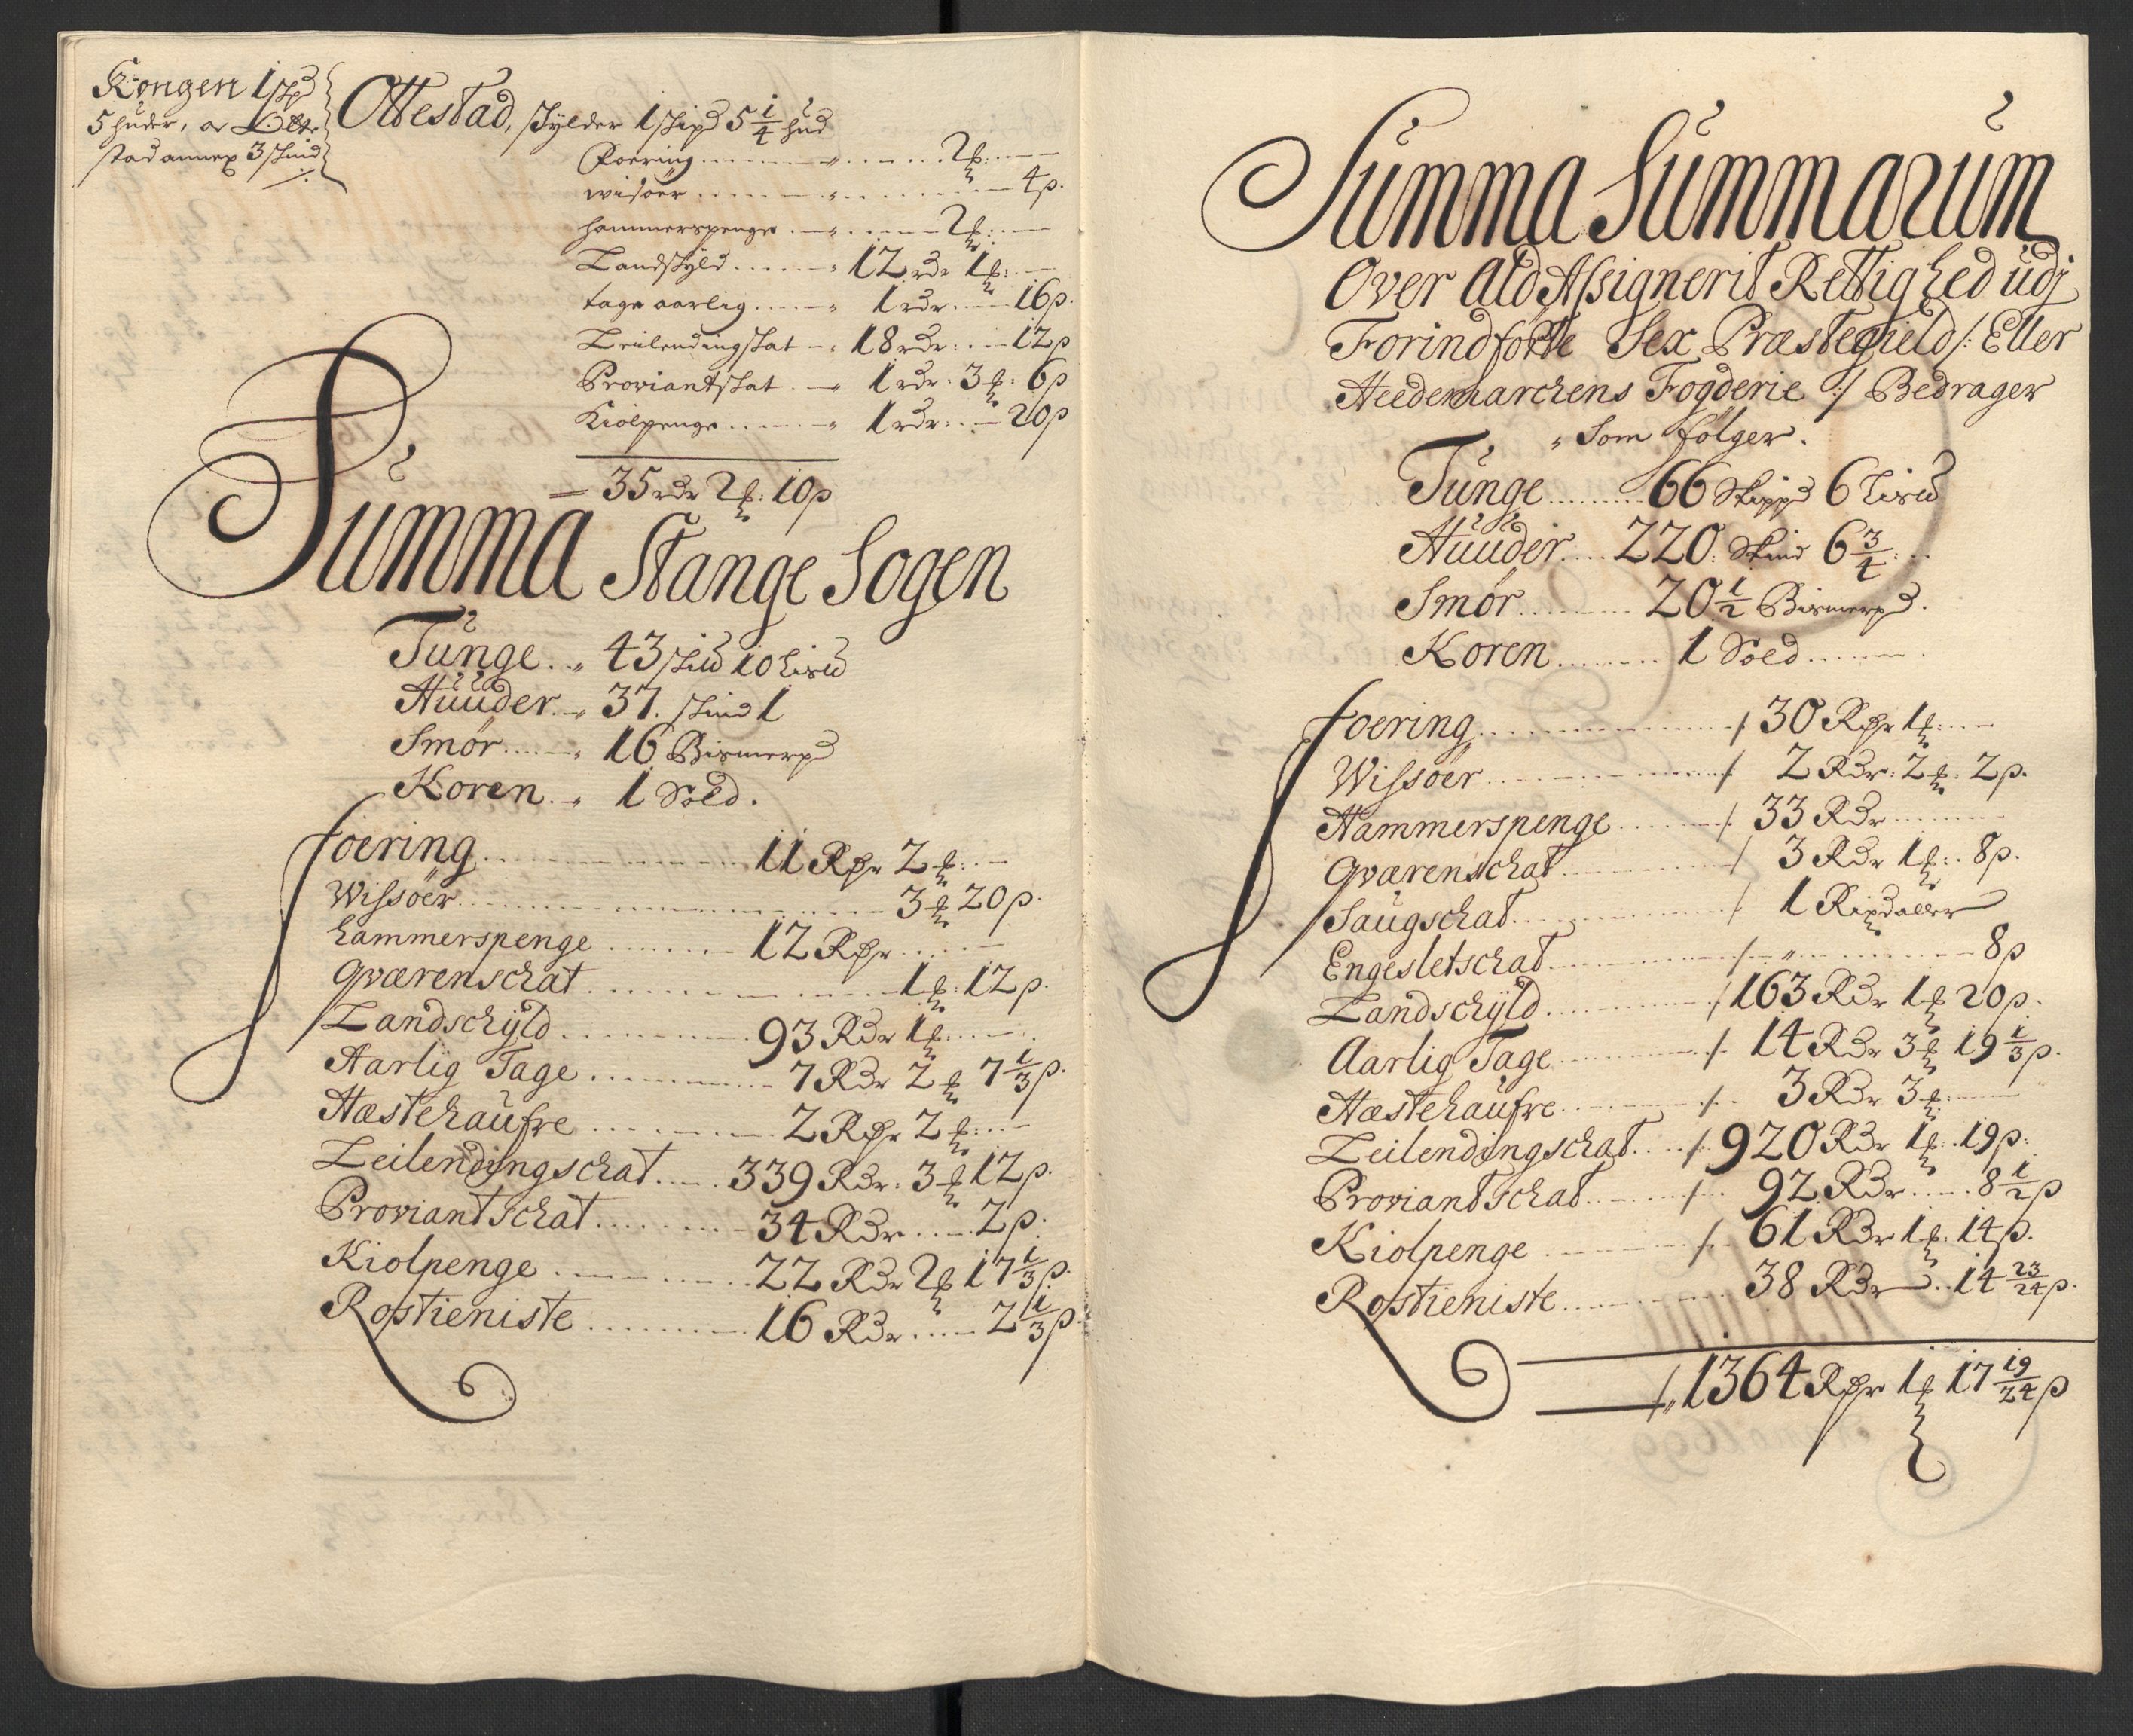 Kongen 1 skpd
5 huder, or Otte-
stad annex 3 skind
Ottestad, skylder 1 skipd 5 1/4 hud
Foering 2 ß
wisöer 4 p.
hammerspenge 2 ß
Landskyld 12 rdr 1 ß
tage aarlig 1 rdr 16 p.
Leilendingskat 18 rdr 12 p
Proviantskat 1 rdr 3 ß 6 p
Kiolpenge 1 rdr 20 p
35 rdr 2 ß 10 p
Summa Stange Sogen
Tunge 43 skild 10 Lisd
Huuder 37. skind 1
Smör 16 Bismerpd
Koren 1 Sold.
foering 11 Rdr 2 ß
Wissöer 3 ß 20 p.
hammerspenge 12 Rdr
Qværenschat 1 ß 12 p.
Landschÿld 93 Rdr 1 ß
Aarlig Tage 7 Rdr 2 ß 7 1/3 p.
Hæstehaufre 2 Rdr 2 ß
Leilendingschat 339 Rdr. 3 ß 12 p.
Proviantschat 34 Rdr 2 p.
Kiolpenge 22 Rdr 2 ß 17 1/3 p.
Rostieniste 16 Rdr 2 1/3 p.
Summa Summarum
Over Ald Assignerit Rettighed udj
Forindförte Sex Præstegield /: Eller
Heedemarchens Fogderie :/ Bedrager
Som fölger.
Tunge 66 Skippd 6 Lisd
Huuder 220. Skind 6 3/4
Smör 20 1/2 Bismerpd.
Koren 1 Sold
foering 30 Rdr 1 ß
Wissöer 2 Rdr. 2 ß 2 p.
Hammerspenge 33 Rdr
Qværenschat 3 Rdr 1 ß 8 p.
Saugschat 1 Rixdaller
Engesletschat 8 p
Landschÿld 163 Rdr 1 ß 20 p.
Aarlig Tage 14 Rdr 3 ß 19 1/3 p.
Hæstehaufre 3 Rdr 3 ß
Leilendingschat 920 Rdr 1 ß 19 p.
Proviantschat 92 Rdr 8 1/2 p
Kiolpenge 61 Rdr 1 ß 14 p.
Rostieniste 38 Rdr 14 23/24 p.
1364 Rdr 1 ß 17 19/24 p